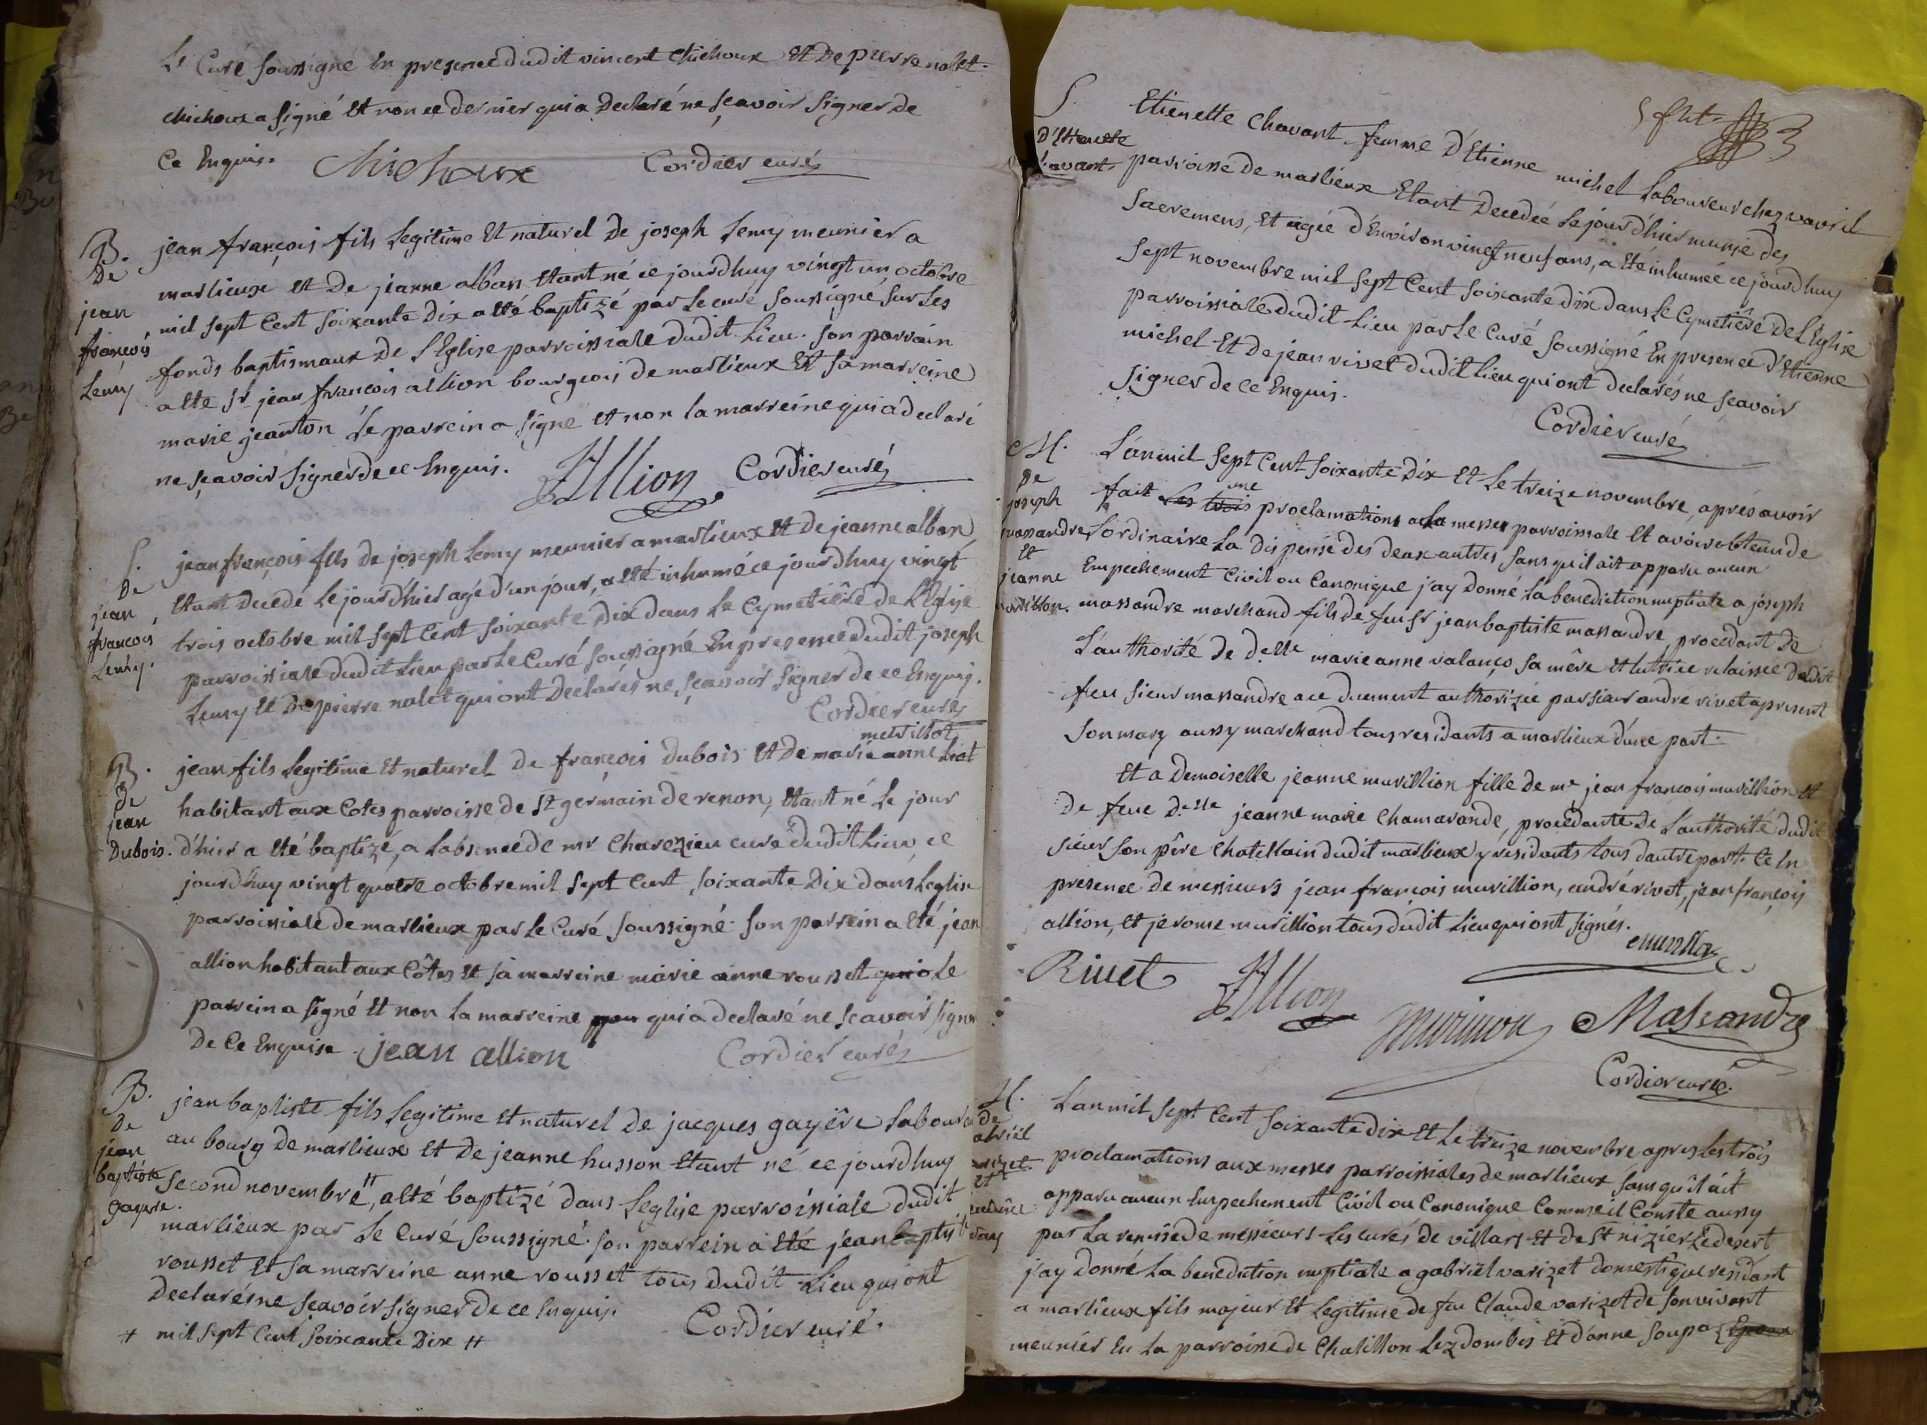 Le Curé soussigné en presence dudit vincent chichoux Et De pierre nalet.
chichoux a signé et non ce dernier qui a Declaré ne sçavoir signer de
Ce Enquis. Chichoux Cordier curé
B.
De
jean
françois
Lemy
jean françois fils Legitime Et naturel De joseph Lemy meunier a
marlieux et De jeanne alban Etant né ce jourdhuy vingt un octobre
mil sept Cent soixante Dix a Eté baptizé par Le curé soussigné, sur Les
fonds baptismaux De l'Eglise parroissiale dudit Lieu. son parrain
a Eté Sr jean françois allion bourgeois de marlieux Et sa marreine
marie jeanton Le parrein a signé et non La marreine qui a declaré
ne sçavoir signer de ce Enquis. JAllion Cordier curé
S.
De
jean
françois
Lemy.
jean françois fils De joseph Lemy meunier a marlieux Et De jeanne alban
Etant Decedé Le jour d'hier agé d'un jour, a Eté inhumé ce jourdhuy vingt
trois octobre mil sept Cent soixante Dix dans Le Cymetière de L'Eglise
parroissiale dudit Lieu par Le Curé soussigné En presence dudit joseph
Lemy Et De pierre nalet qui ont Declarés ne sçavoir signer de ce Enquis.
Cordier curé
B.
De
jean
Dubois.
jean fils Legitime Et naturel De françois dubois Et De marie anne
habitant aux Cotes parroisse de St germain de renon, Etant né Le jour
d'hier a Eté baptizé, a Labsence de mr Charezieu curé dudit Lieu ce
jourdhuy vingt quatre octobre mil sept Cent soixante Dix dans Leglise
parroissiale de marlieux par Le Curé soussigné. son parrein a Eté jean
allion habitant aux Côtes Et sa marreine marie anne rousset Le
parrein a signé Et non La marreine qui a declaré ne sçavoir signer
De Ce Enquise. jean allion Cordier curé
B.
De
jean
baptiste
gayere.
jean baptiste fils Legitime Et naturel De jacques gayêre Laboureur
au bourg de marlieux et De jeanne husson Etant né ce jourdhuy
second novembre ++, a Eté baptizé dans L'eglise parroissiale dudit
marlieux par Le Curé soussigné. son parrein a Eté jean baptiste
rousset Et sa marreine anne rousset tous dudit Lieu qui ont
Declarés ne sçavoir signer de ce Enquis. Cordier curé.
+ mil sept Cent soixante Dix ++
S.
D'Etienette
Chavant
Etienette Chavant femme D'Etienne michel Laboureur chez vavril
parroisse De marlieux Etant Decedée Le jour d'hier munie des
sacremens, Et agée d'Environ vingt neuf ans, a Eté inhumée ce jourdhuy
sept novembre mil sept Cent soixante Dix dans Le Cymetière De L'Eglise
parroissiale dudit Lieu par Le Curé soussigné En presence d'Etienne
michel Et De jean rivet dudit Lieu qui ont declarés ne sçavoir
signer de ce Enquis.
Cordier curé
M.
De
joseph
massandre
Et
jeanne
L'an mil sept Cent soixante Dix Et Le treize novembre, après avoir
fait Les trois me proclamations a La messe parroissiale Et avoir obtenu de
L'ordinaire La dispense des deux autres sans qu'il ait apparu aucun
Empechement Civil ou Canonique j'ay donné La benediction nuptiale a joseph
massandre marchand fils de feu Sr jean baptiste massandre, procedant de
L'authorité de Delle marie anne valançô sa mère et tutrice relaissée dudit
feu sieur massandre a ce duement authorizée par sieur andre rivet a present
son mary aussy marchand tous residants a marlieux d'une part.
Et a Demoiselle jeanne muvillion fille de me jean françois muvillion Et
De feue Delle jeanne marie Chamarande, procedante De L'authorité dudit
sieur son pêre Chatellain dudit marlieux y residants tous dautre part. Ce En
presence De messieurs jean françois muvillion, andré rivet, jean françois
allion, Et jerome muvillion tous dudit Lieu qui ont signés.
Rivet JAllion Muvillion Massandre
Cordier curé.
M.
L'an mil sept Cent soixante dix Et Le treize novembre apres Les trois
proclamations aux messes parroissiales de marlieux sans qu'il ait
apparu aucun Empechement Civil ou Canonique Comme il Conste aussy
par La remisse de messieurs Les curés de villars Et de St nizier Le desert
j'ay donné La benediction nuptiale a gabriel varizet domestique residant
a marlieux fils majeur Et Legitime de feu Claude varizet de son vivant
meunier En La parroisse de Chatillon Lez dombes Et d'anne soupaz